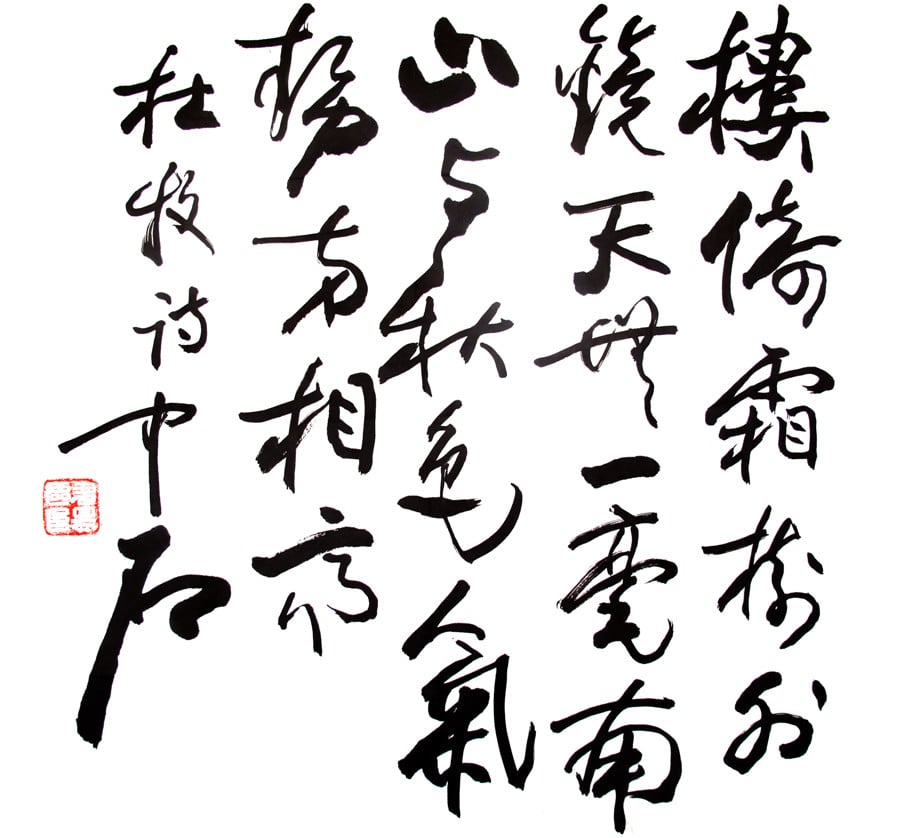 樓倚霜樹外
鏡天無一毫南
山与秋色氣
勢两相高
杜牧诗中石